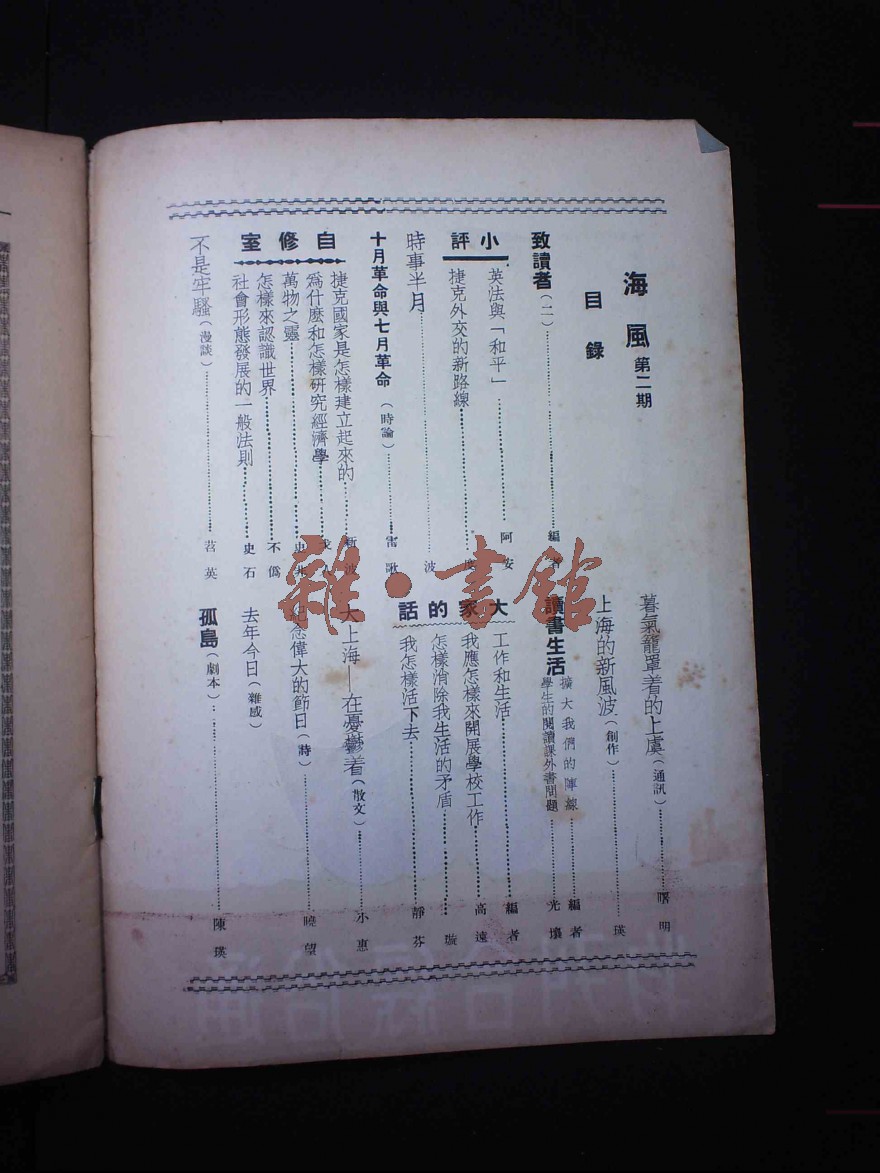 海風 第二期
目錄
致讀者(二) 編者
小評
英法與「和平」 阿安
捷克外交的新路線 度
時事半月 波
十月革命與七月革命(時論) 雷歌
自修室
捷克國家是怎樣建立起來的 新波
爲什麼和怎樣研究經濟學
萬物之靈
怎樣來認識世界 不僞
社會形態發展的一般法則 史石
不是牢騷(漫談) 苕英
暮氣籠罩着的上虞(通訊) 曙明
上海的新風波(創作) 瑛
讀書生活
擴大我們的陣線 編者
學生的閱讀課外書問題 光壤
大家的話
工作和生活 編者
我應怎樣來開展學校工作 高遠
怎樣消除我生活的矛盾
我怎樣活下去 靜芬
大上海—在憂鬱着(散文) 小惠
紀念偉大的節日(詩) 曉望
去年今日(雜感)
孤島(劇本) 陳瑛
雜·書館